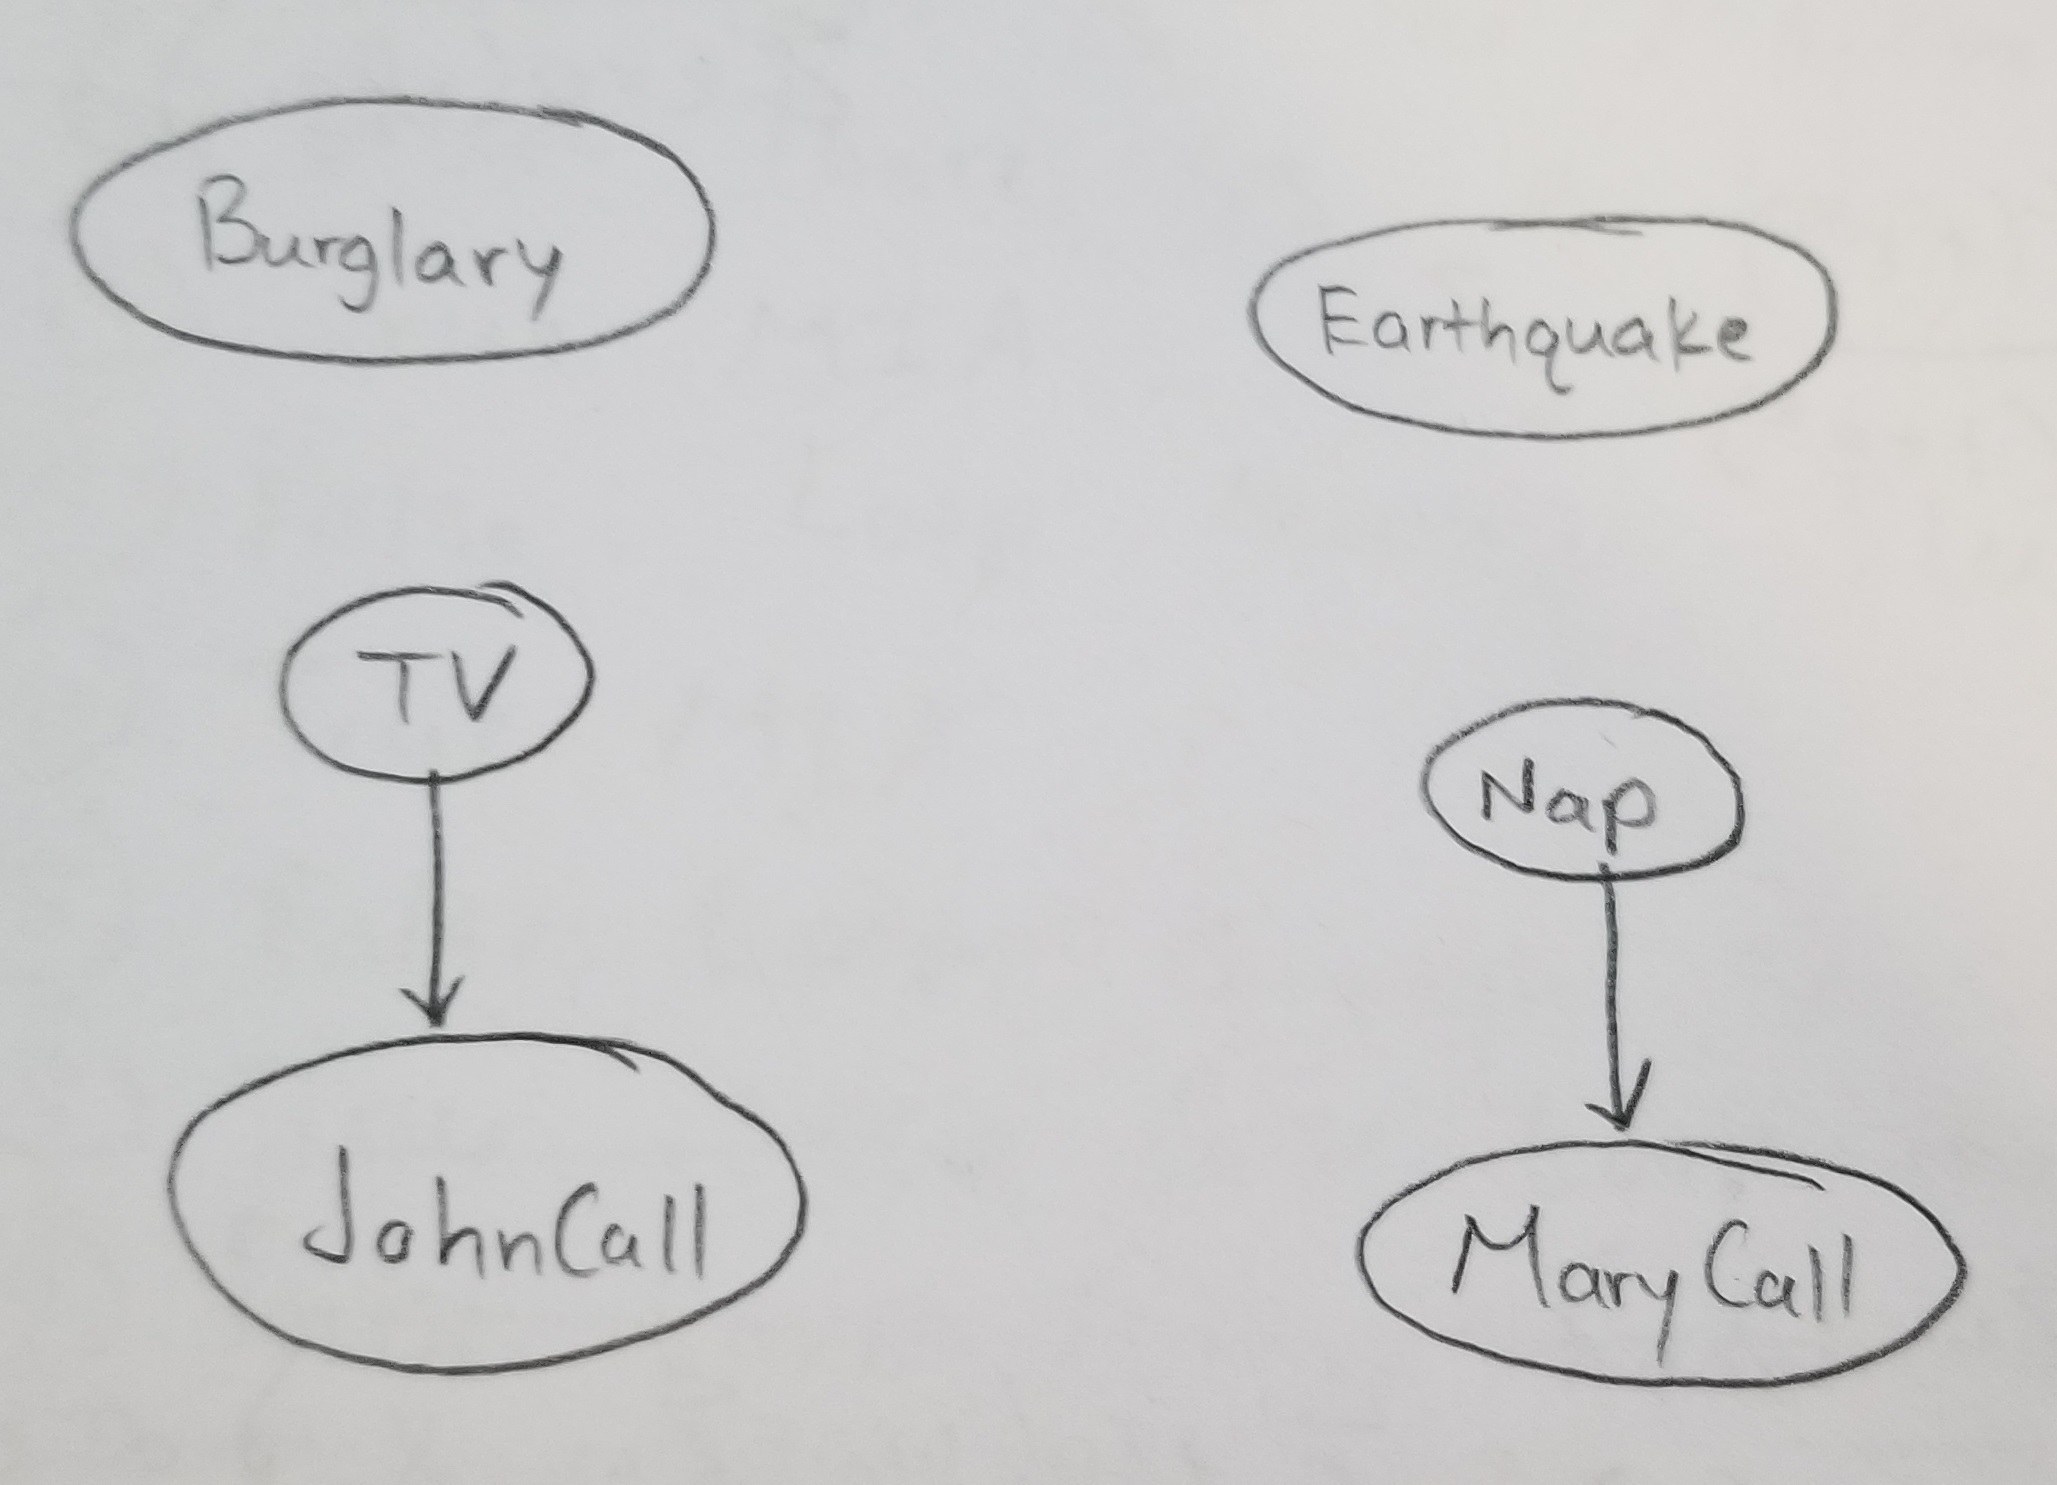 Burglary
Earthquake
TV
Nap
JohnCall
MaryCall